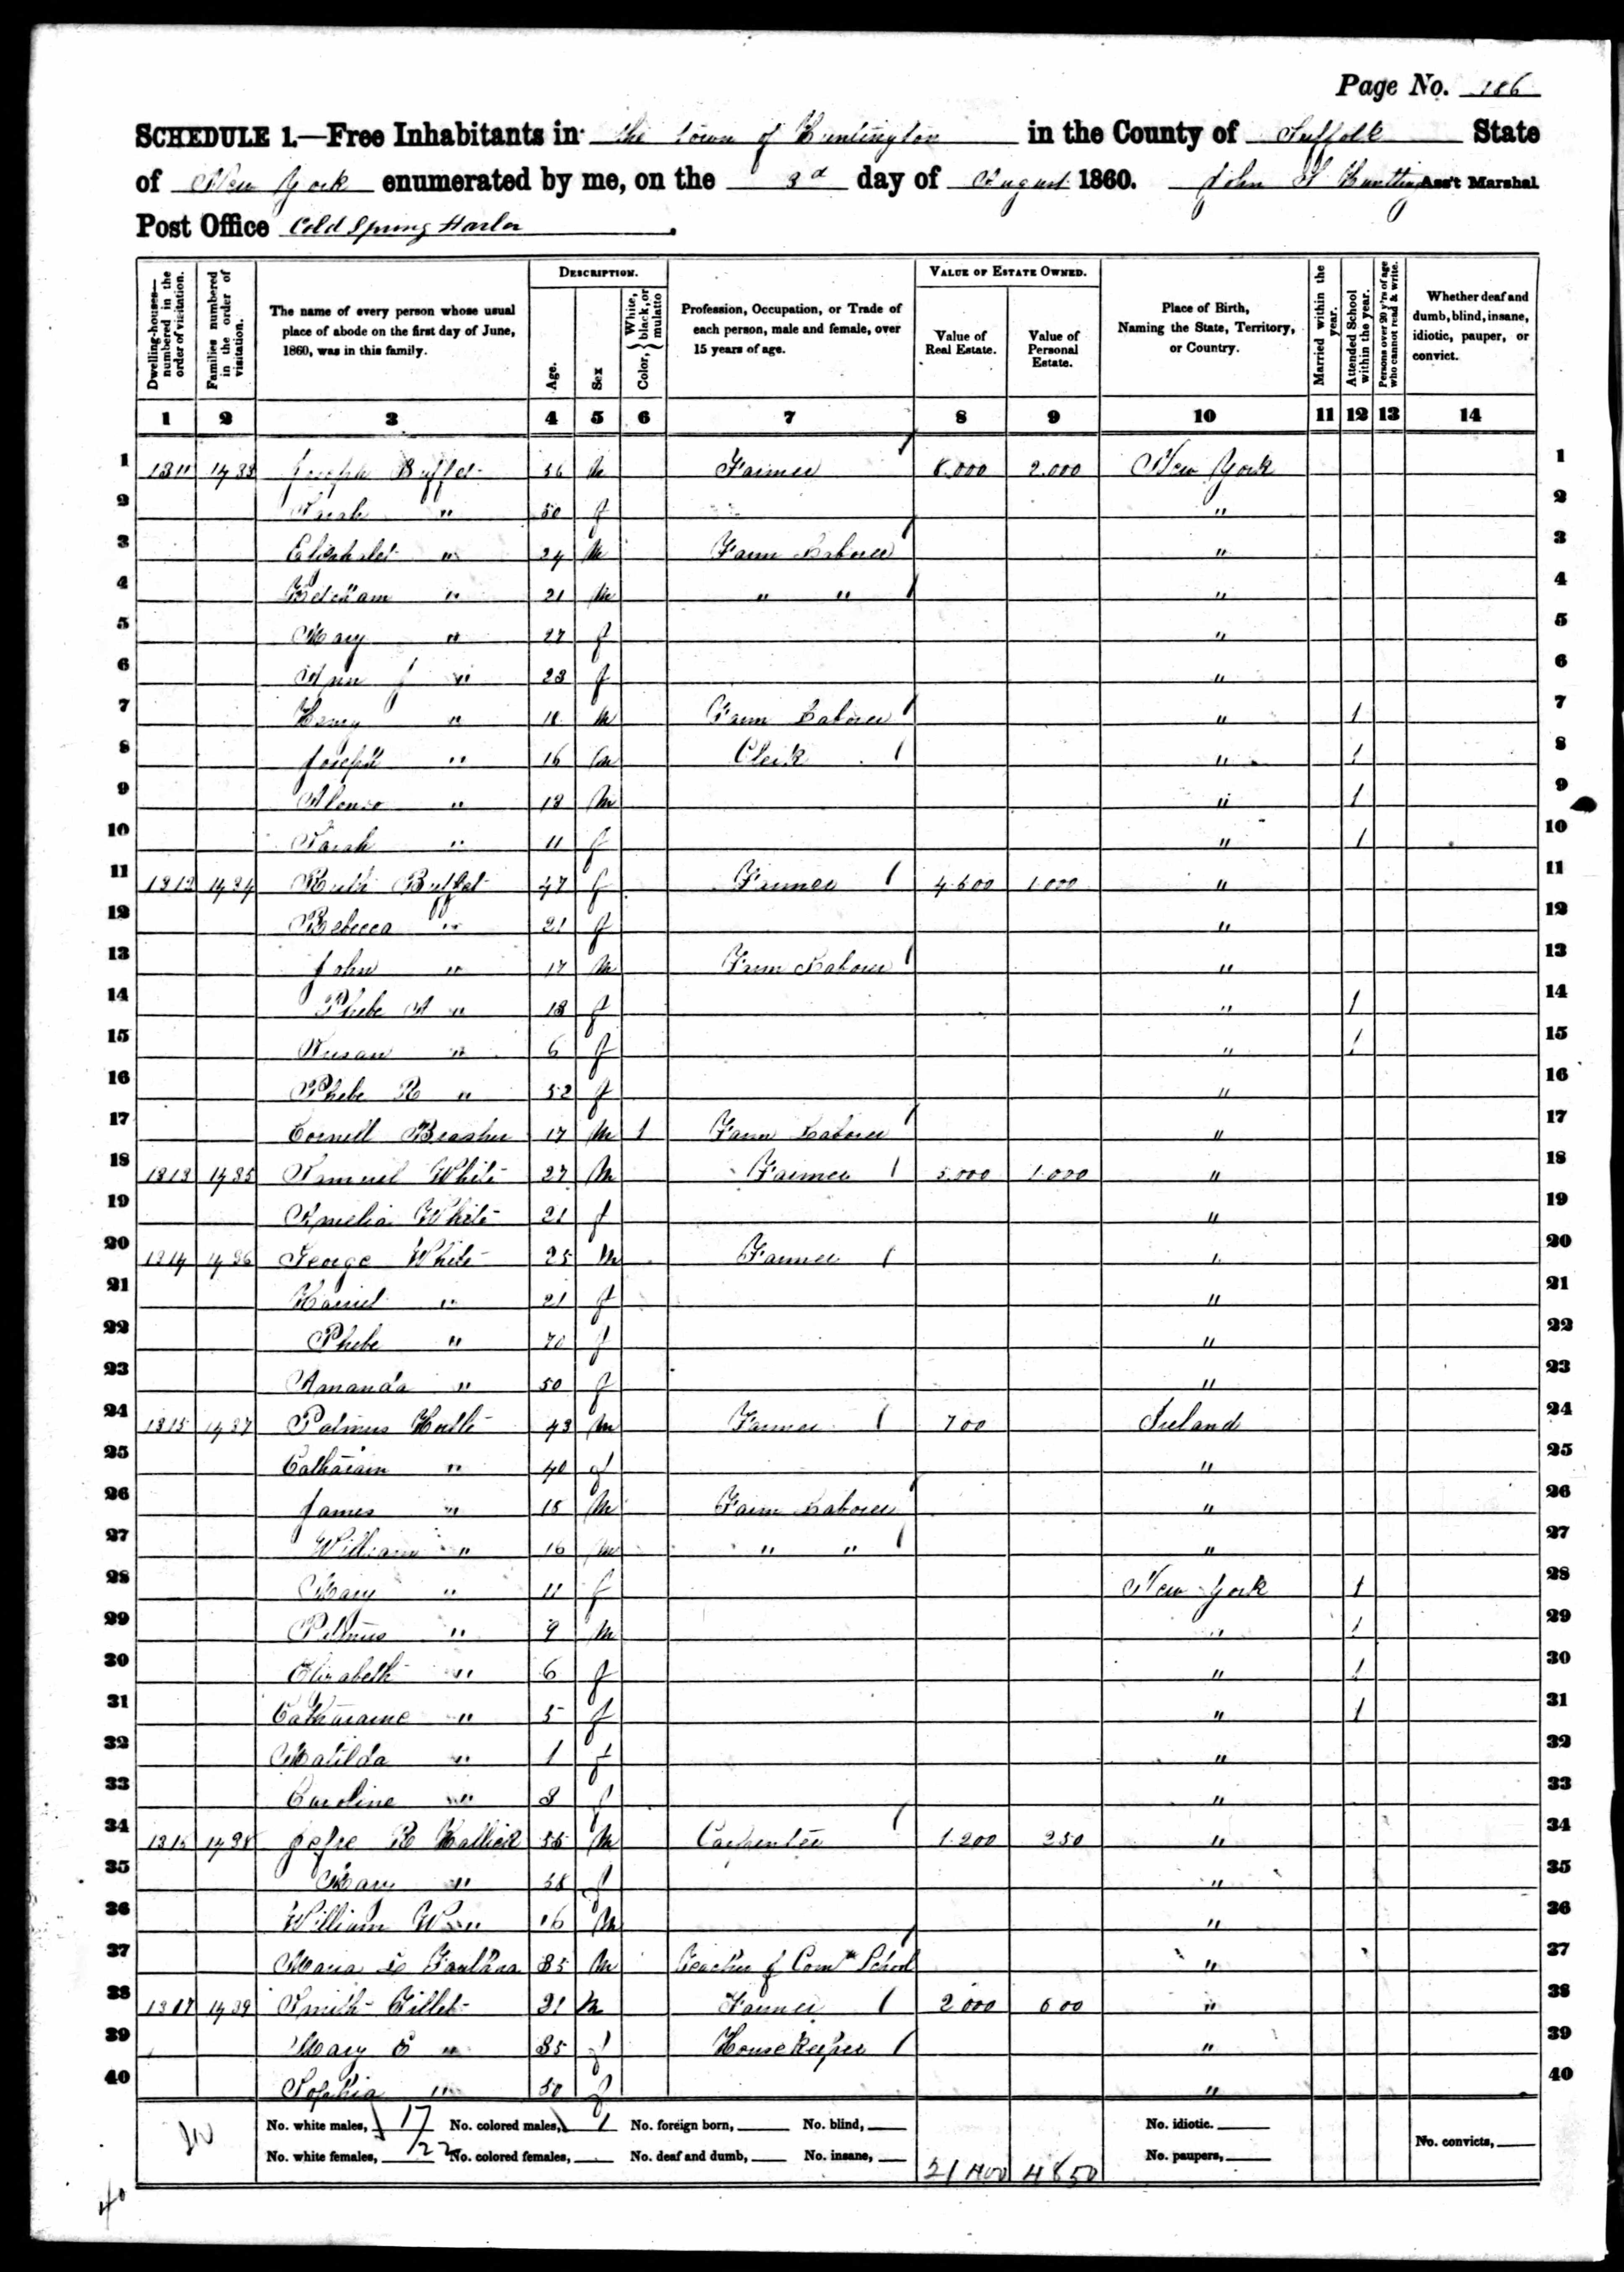 Page No. 186
SCHEDULE 1.—Free Inhabitants in the Town of Huntington in the County of Suffolk State
of New York enumerated by me, on the 3d day of August 1860. John Ass't Marshal
Post Office Cold Spring Harbor.
Dwelling-houses—numbered in the order of visitation. Families numbered in the order of visitation. The name of every person whose usual place of abode on the first day of June, 1860, was in this family. DESCRIPTION. Age. Sex Color, White, black, or mulatto Profession, Occupation, or Trade of each person, male and female, over 15 years of age. VALUE OF ESTATE OWNED. Value of Real Estate. Value of Personal Estate. Place of Birth, Naming the State, Territory, or Country. Married within the year. Attended School within the year. Persons over 20 y'rs of age who cannot read & write. Whether deaf and dumb, blind, insane, idiotic, pauper, or convict.
1 2 3 4 5 6 7 8 9 10 11 12 13 14
1 1311 1433 Joseph Buffet 56 M Farmer / 8.000 2.000 New York 1
2 Sarah " 50 f " 2
3 Eliphalet " 24 M Farm Laborer / " 3
4 Ketcham " 21 M " " / " 4
5 Mary " 27 f " 5
6 Ann J " 23 f " 6
7 Henry " 18 M Farm Laborer / " 1 7
8 Joseph " 16 M Clerk / " 1 8
9 Alonzo " 13 M " 1 9
10 Sarah " 11 f " 1 10
11 1312 1434 Ruth Buffet 47 f Farmer / 4.500 1.000 " 11
12 Rebecca " 21 f " 12
13 John " 17 M Farm Laborer / " 13
14 Phebe A " 13 f " 1 14
15 Susan " 6 f " 1 15
16 Phebe R " 52 f " 16
17 Cornell Brasher 17 M 1 Farm Laborer / " 17
18 1313 1435 Samuel White 27 M Farmer / 5.000 1.000 " 18
19 Amelia White 21 f " 19
20 1314 1436 George White 25 M Farmer / " 20
21 Harriet " 21 f " 21
22 Phebe " 70 f " 22
23 Amanda " 50 f " 23
24 1315 1437 43 M Farmer / 700 Ireland 24
25 Catharain " 40 f " 25
26 James " 18 M Farm Laborer / " 26
27 William " 16 M " " / " 27
28 Mary " 11 f New York 1 28
29 " 9 M " 1 29
30 Elizabeth " 6 f " 1 30
31 Catharaine " 5 f " 1 31
32 Matilda " 1 f " 32
33 Caroline " 3 f " 33
34 1316 1438 Jesse R 55 M Carpenter / 1.200 250 " 34
35 Mary " 58 f " 35
36 William W " 16 M " 36
37 35 M Teacher of Com School / " 37
38 1317 1439 Smith Gillet 31 M Farmer / 2.000 600 " 38
39 Mary E " 35 f House Keeper / " 39
40 Sophia " 50 f " 40
No. white males, 17 No. colored males, 1 No. foreign born, No. blind, No. idiotic.
No. white females, 22 No. colored females, No. deaf and dumb, No. insane, 21400 4850 No. paupers, No. convicts,
40